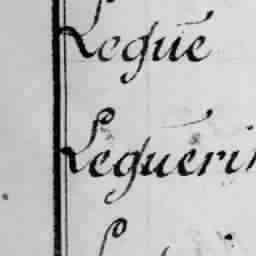 Legué
Leguéri